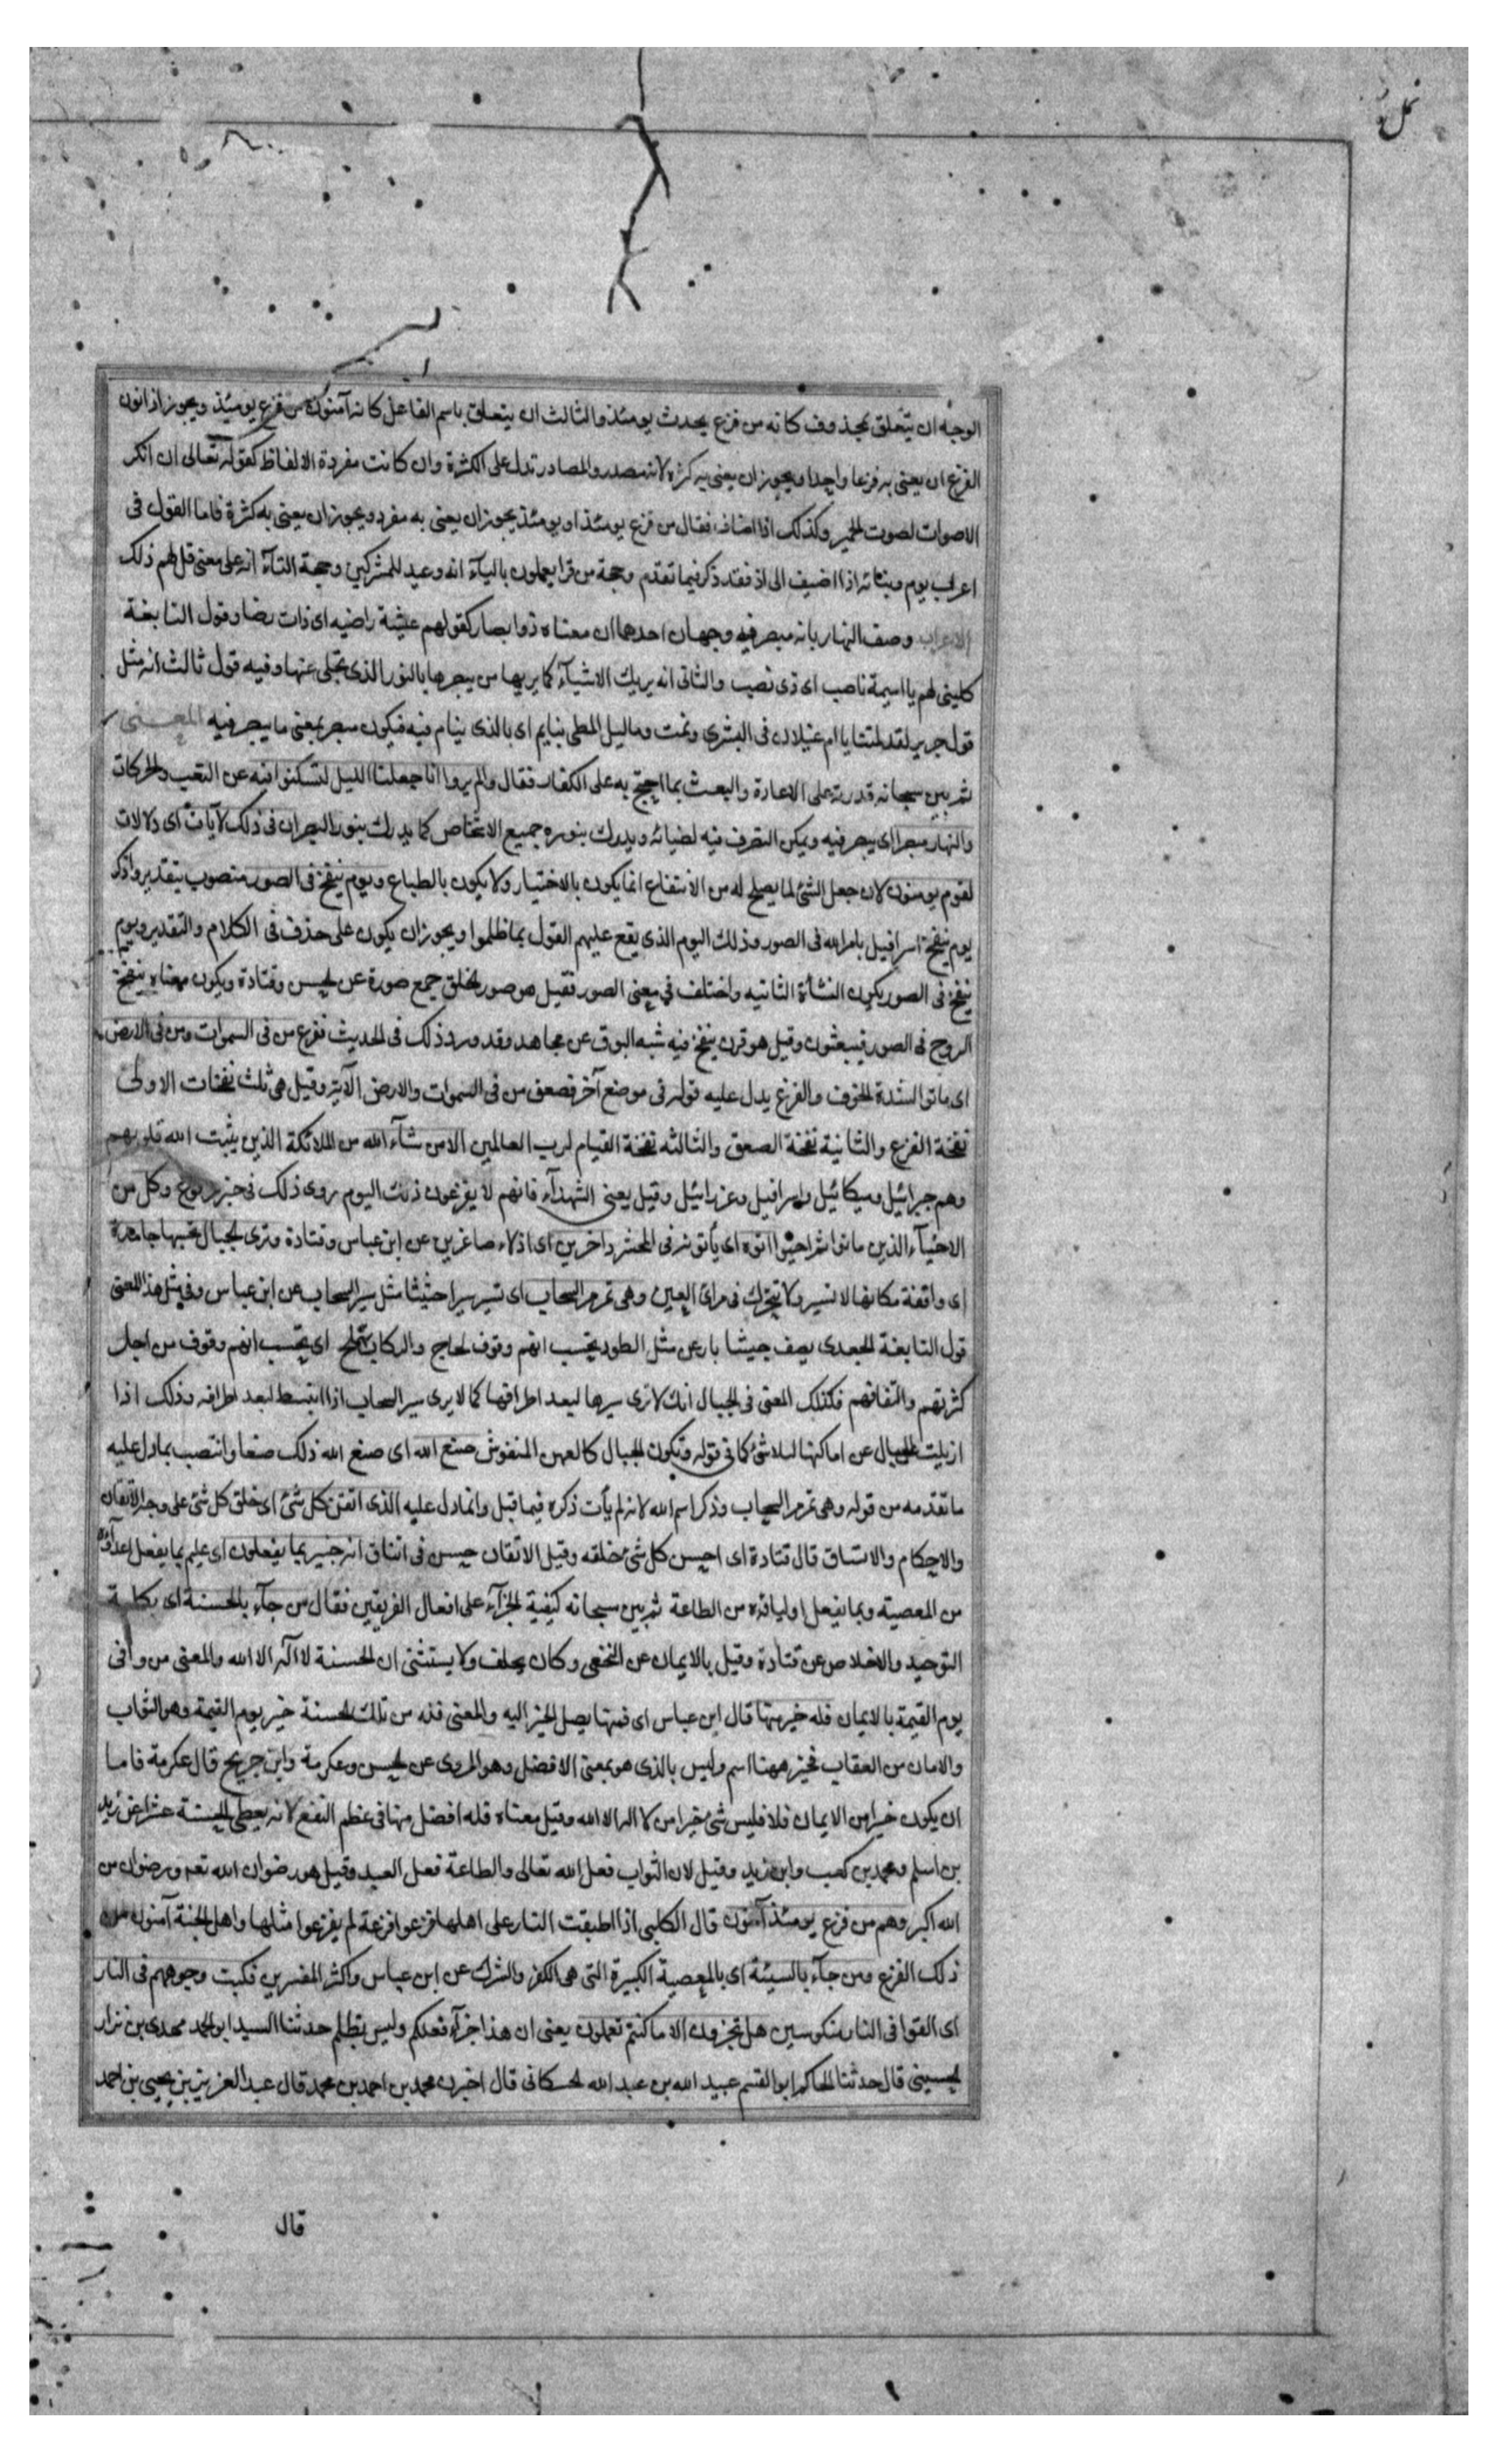 نمل
الوجه ان يتعلق بمحذوف كانه من فزع يحدث يومئذ والثالث ان يتعلق باسم الفاعل كانه آمنون من فزع يومئذ ويجوز اذا نون
الفزع ان يعنى به فزعا واحدا ويجوز ان يعنى به كثرة لانه مصدر والمصادر تدل على الكثرة وان كانت مفردة الالفاظ كقوله تعالى ان انكر
الاصوات لصوت الحمير وكذلك اذا اضاف فقال من فزع يومئذ او يومئذ يجوز ان يعنى به مفرد ويجوز ان يعنى به كثرة فاما القول فى
اعراب يوم وبنائه اذا اضيف الى اذ فقد ذكر فيما تقدم وحجة من قرا يعملون بالياء انه وعيد للمشركين وحجة التاء انه على معنى قل لهم ذلك
الاعراب وصف النهار بانه مبصر فيه وجهان احدهما ان معناه ذو ابصار كقولهم عيشة راضيه اى ذات رضا وقول النابغة
كلينى لهم يا اميمة ناصب اى ذى نصب والثانى انه يريك الاشياء كما يريها من يبصرها بالنور الذى تجلى عنها وفيه قول ثالث انه مثل
قول جرير لقد لمتنا يا ام غيلان فى السرى ونمت وما ليل المطى بنايم اى بالذى ينام فيه فيكون مبصر بمعنى ما يبصر فيه المعنى
ثم بين سبحانه قدرته على الاعادة والبعث بما احتج به على الكفار فقال والم يروا انا جعلنا الليل لتسكنوا فيه عن التعب والحركات
والنهار مبصرا اى يبصر فيه ويمكن التصرف فيه لضيائه ويدرك بنوره جميع الاشخاص كما يدرك بنور البصر ان فى ذلك لآيات اى دلالات
لقوم يومنون لان جعل الشئ لما يصلح له من الانتفاع انما يكون بالاختيار ولا يكون بالطباع ويوم ينفخ فى الصور منصوب بتقدير واذكر
يوم ينفخ اسرافيل بامر الله فى الصور وذلك اليوم الذى يقع عليهم القول بما ظلموا ويجوز ان يكون على حذف فى الكلام والتقدير ويوم
ينفخ فى الصور يكون النشأة الثانيه واختلف فى معنى الصور فقيل هو صور الخلق جمع صورة عن الحسن وقتادة ويكون معناه ينفخ
الروح فى الصور فيبعثون وقيل هو قرن ينفخ فيه شبه البوق عن مجاهد وقد ورد ذلك فى الحديث ففزع من فى السموات ومن فى الارض
اى ماتوا لشدة الخوف والفزع يدل عليه قوله فى موضع آخر فصعق من فى السموات والارض الآية وقيل هى ثلث نفخات الاولى
نفخة الفزع والثانية نفخة الصعق والثالثه نفخة القيام لرب العالمين الا من شآء الله من الملائكة الذين يثبت الله قلوبهم
وهم جبرائيل وميكائيل واسرافيل وعزرائيل وقيل يعنى الشهدآء فانهم لا يفزعون ذلك اليوم روى ذلك فى خبر مرفوع وكل من
الاحيآء الذين ماتوا ثم احيوا اتوه اى يأتونه فى المحشر داخرين اى اذلاء صاغرين عن ابن عباس وقتادة وترى الجبال تحسبها جامدة
اى واقفة مكانها لا تسير ولا تتحرك فى مراى العين وهى تمر مر السحاب اى تسير سيرا حثيثا مثل سير السحاب عن ابن عباس وفى مثل هذا المعنى
قول النابغة الجعدى يصف جيشا بارعن مثل الطود تحسب انهم وقوف لحاج والركاب تهملج اى تحسب انهم وقوف من اجل
كثرتهم والتفافهم فكذلك المعنى فى الجبال انك لا ترى سيرها لبعد اطرافها كما لا يرى سير السحاب اذا انبسط لبعد اطرافه وذلك اذا
ازيلت الجبال عن اماكنها للتلاشى كما فى قوله وتكون الجبال كالعهن المنفوش صنع الله اى صنع الله ذلك صنعا وانتصب بما دل عليه
ما تقدمه من قوله وهى تمر مر السحاب وذكر اسم الله لانه لم يأت ذكره فيما قبل وانما دل عليه الذى اتقن كل شئ اى خلق كل شئ على وجه الاتقان
والاحكام والاتساق قال قتادة اى احسن كل شئ خلقه وقيل الاتقان حسن فى ايثاق انه خبير بما يفعلون اى عليم بما يفعل اعدآؤه
من المعصية وبما يفعل اولياؤه من الطاعة ثم بين سبحانه كيفية الجزآء على افعال الفريقين فقال من جآء بالحسنة اى بكلمة
التوحيد والاخلاص عن قتادة وقيل بالايمان عن النخعى وكان يحلف ولا يستثنى ان الحسنة لا اله الا الله والمعنى من وافى
يوم القيمة بالايمان فله خير منها قال ابن عباس اى فمنها يصل الخير اليه والمعنى فله من تلك الحسنة خير يوم القيمة وهو الثواب
والامان من العقاب فخير ههنا اسم وليس بالذى هو بمعنى الافضل وهو المروى عن الحسن وعكرمة وابن جريح قال عكرمة فاما
ان يكون خيرا من الايمان فلا فليس شئ خيرا من لا اله الا الله وقيل معناه فله افضل منها فى عظم النفع لانه يعطى بالحسنة عشرا عن زيد
بن اسلم ومحمد بن كعب وابن زيد وقيل لان الثواب فعل الله تعالى والطاعة فعل العبد وقيل هو رضوان الله تعم ورضوان من
الله اكبر وهم من فزع يومئذ آمنون قال الكلبى اذا اطبقت النار على اهلها فزعوا فزعة لم يفزعوا مثلها واهل الجنة آمنون من
ذلك الفزع ومن جآء بالسيئة اى بالمعصية الكبيرة التى هى الكفر والشرك عن ابن عباس واكثر المفسرين فكبت وجوههم فى النار
اى القوا فى النار منكوسين هل تجزون الا ما كنتم تعملون يعنى ان هذا جزآء فعلكم وليس بظلم حدثنا السيد ابو الحمد مهدى بن نزار
الحسينى قال حدثنا الحاكم ابو القسم عبيد الله بن عبد الله الحسكانى قال اخبرنا محمد بن احمد بن محمد قال عبد العزيز بن يحيى بن احمد
قال